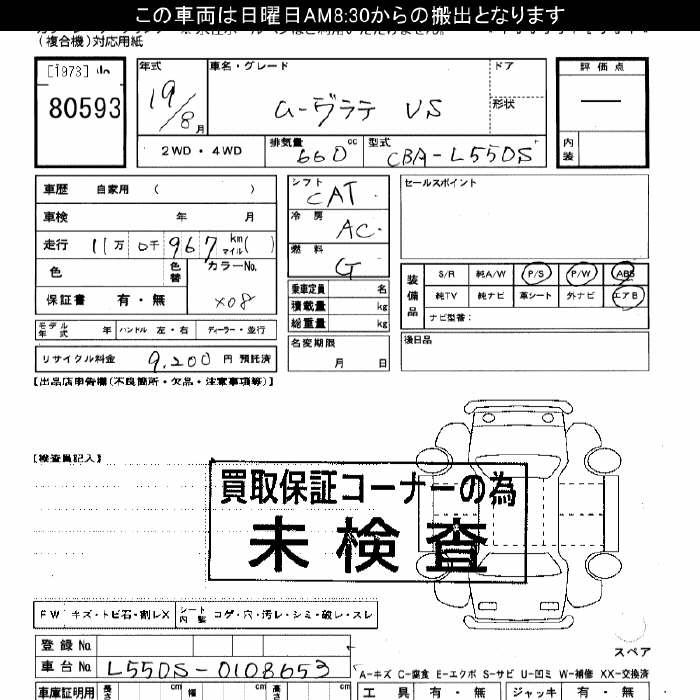 この車両は日曜日AM8:30からの搬出となります
(複合機)対応用紙
[1973]
80593
年式 19/8月
車名・グレード ムーヴラテ VS
ドア
形状
評価点
内装
2WD・4WD
排気量 660 cc
型式 CBA-L550S
車歴 自家用 ( )
車検 年 月
走行 11万0千967 km マイル( )
色
色替
カラーNo. X08
保証書 有・無
モデル年式 年
ハンドル 左・右
ディーラー・並行
リサイクル料金 9,200 円 預託済
シフト CAT
冷房 AC
燃料 G
乗車定員 名
積載量 kg
総重量 kg
名変期限
月 日
セールスポイント
装備品
S/R 純A/W P/S P/W ABS
純TV 純ナビ 革シート 外ナビ エアB
ナビ型番:
後日品
【出品店申告欄(不良箇所・欠品・注意事項等)】
【検査員記入】
買取保証コーナーの為
未検査
FW キズ・トビ石・割レX
シート内装 コゲ・穴・汚レ・シミ・破レ・スレ
スペア
登録No.
車台No. L550S-0108653
A-キズ C-腐食 E-エクボ S-サビ U-凹ミ W-補修 XX-交換済
車庫証明用 長さ cm 幅 cm 高さ cm
工具 有・無 ジャッキ 有・無